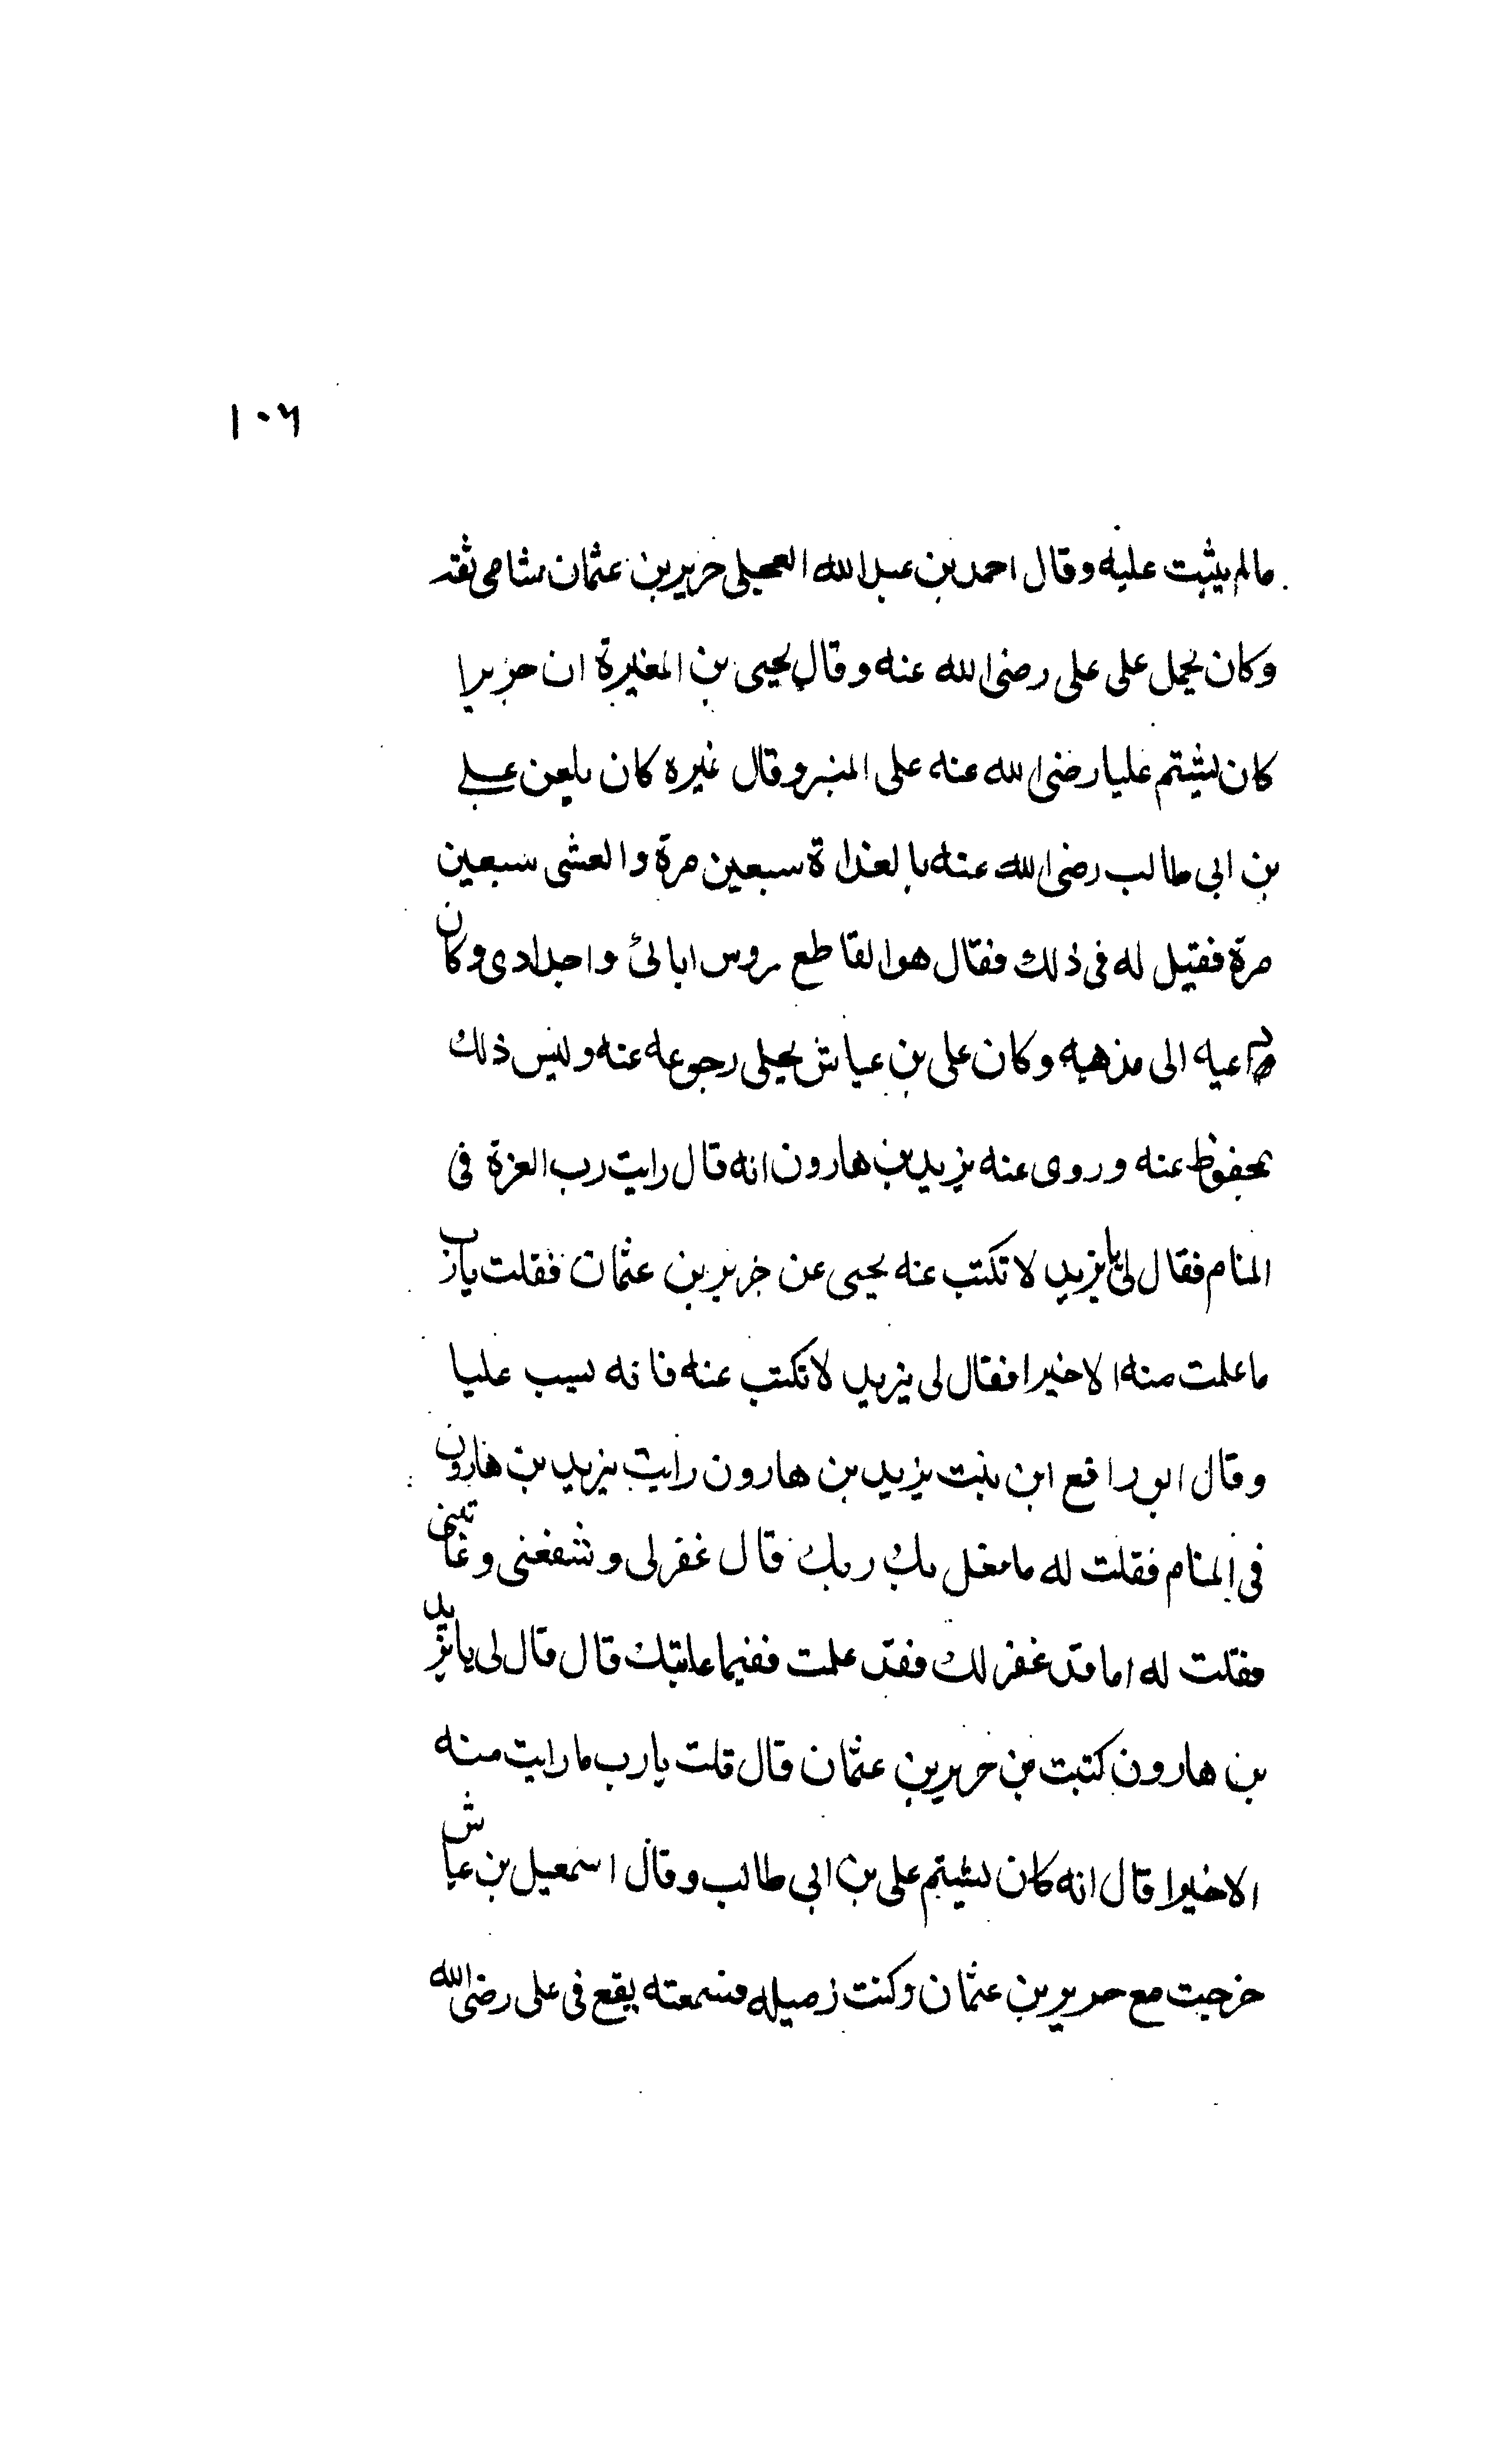 ١٠٦
مالم يثبت عليه وقال احمد بن عبد الله العجلي حريز بن عثمان شامي ثقه
وكان يحمل على على رضى الله عنه وقال يحيى بن المغيرة ان حزيرا
كان يشتم عليا رضى الله عنه على المنبر وقال غيره كان يلعن على
بن ابي طالب رضى الله عنه بالغداة سبعين مرة والعشى سبعين
مرة فقيل له فى ذلك فقال هو القاطع روس ابائى واجدادى وكان
داعيه الى مذهبه وكان على بن عياش يحكى رجوعه عنه وليس ذلك
بمحفوظ عنه وروى عنه يزيد بن هارون انه قال رايت رب العزة فى
المنام فقال لى يا يزيد لا تكتب عنه يحيى عن حريز بن عثمان فقلت يا رب
ما علمت منه الا خيرا فقال لى يزيد لا تكتب عنه فانه يسب عليا
وقال ابو رافع ابن بنت يزيد بن هارون رايت يزيد بن هارون
فى المنام فقلت له ما فعل بك ربك قال غفر لى وشفعنى وعاتبنى
فقلت له اما قد غفر لك فقد علمت ففيما عاتبك قال قال لى يا يزيد
بن هارون كتبت من حريز بن عثمان قال قلت يا رب ما رايت منه
الا خيرا قال انه كان يشتم على بن ابى طالب وقال اسمعيل بن عياش
خرجت مع حريز بن عثمان وكنت زميله فسمعته يقع فى على رضى الله